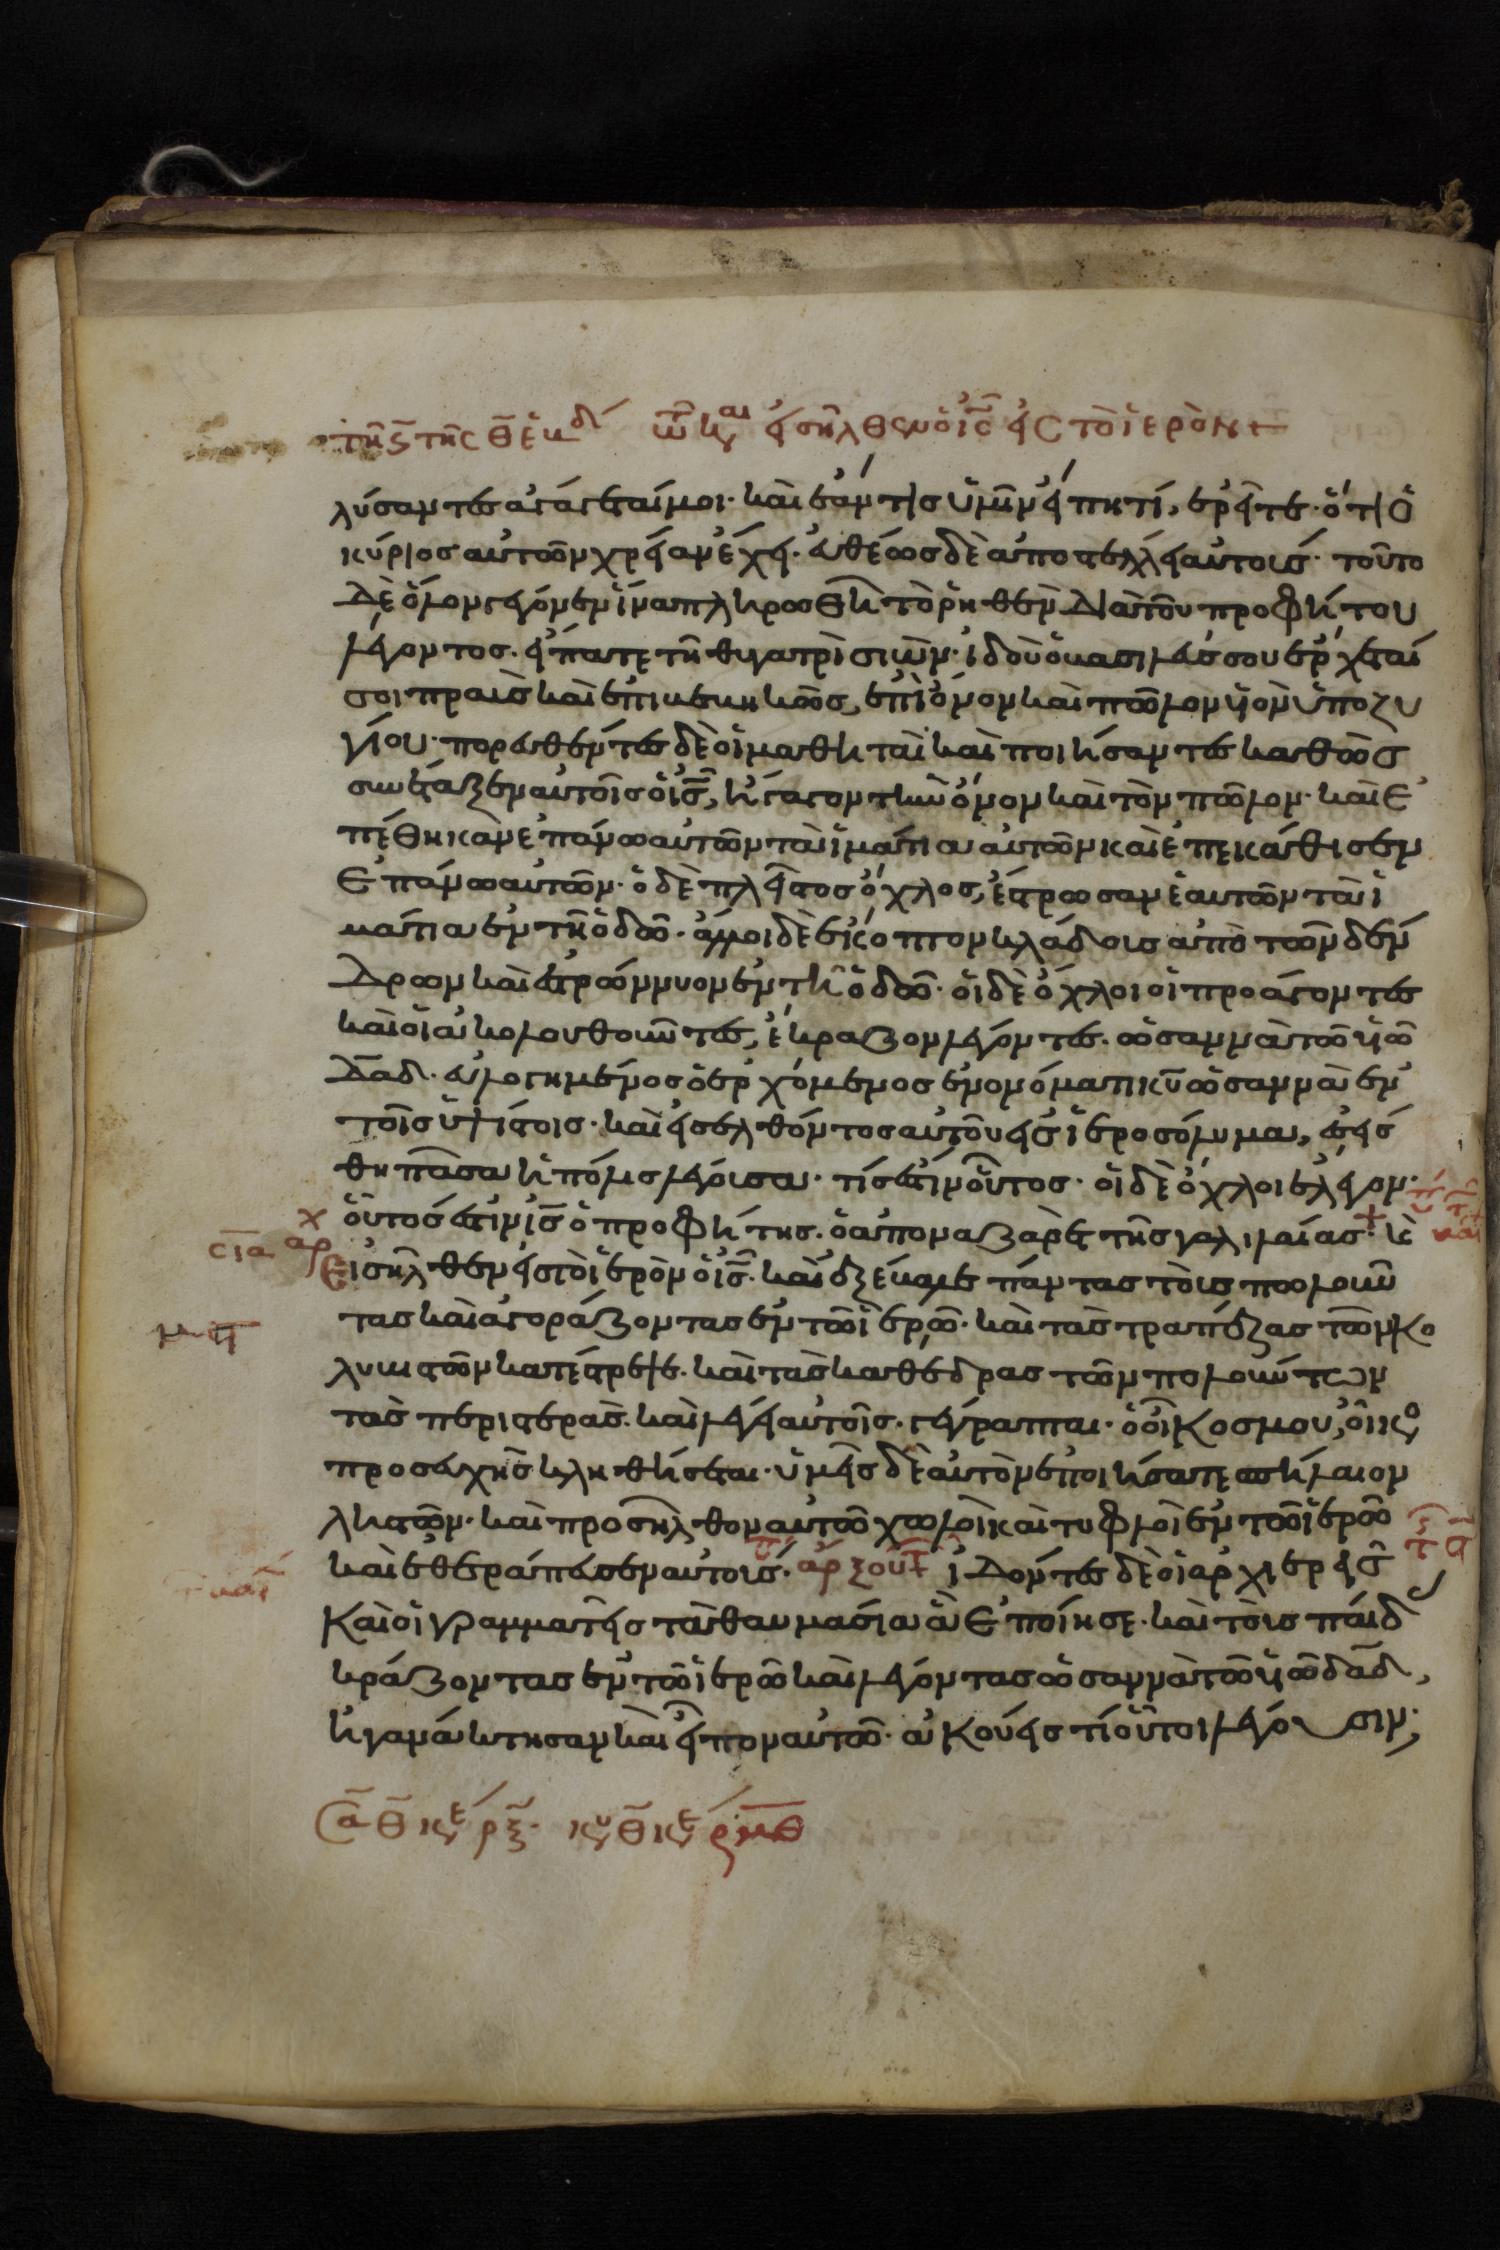 τῆ ϛ τῆς θ ἑβδ τῶ κ εἰσῆλθεν ὁ ις εἰς τὸ ἱερὸν +
λύσαντες ἀγάγεταί μοι· καὶ ἐάν τις ὑμῖν εἴπη τί, ἐρεῖτε· ὅτι ὁ
κύριος αὐτῶν χρείαν ἔχει· εὐθέως δὲ ἀποστέλλει αὐτούς· τοῦτο
δὲ ὅλον γέγονεν ἵνα πληρωθῆ τὸ ῥηθὲν διὰ τοῦ προφήτου
λέγοντος· εἴπατε τῆ θυγατρὶ σιών· ἰδοὺ ὁ βασιλεύς σου ἔρχεταί
σοι πραῢς καὶ ἐπιβεβηκὼς, ἐπὶ ὄνον καὶ πῶλον υἱὸν ὑποζυ
γίου· πορευθέντες δὲ οἱ μαθηταὶ καὶ ποιήσαντες καθὼς
συνέταξεν αὐτοῖς ὁ ις, ἤγαγον τὴν ὄνον καὶ τὸν πῶλον· καὶ ἐ
πέθηκαν ἐπάνω αὐτῶν τὰ ἱμάτια αὐτῶν καὶ ἐπεκάθισεν
ἐπάνω αὐτῶν· ὁ δὲ πλεῖστος ὄχλος, ἔστρωσαν ἑαυτῶν τὰ ἱ
μάτια ἐν τῆ ὁδῶ· ἄλλοι δὲ ἔκοπτον κλάδους ἀπὸ τῶν δέν
δρων καὶ ἐστρώννυον ἐν τῆ ὁδῶ· οἱ δὲ ὄχλοι οἱ προάγοντες
καὶ οἱ ἀκολουθοῦντες, ἔκραζον λέγοντες· ὡσαννὰ τῶ υἱῶ
δαδ· εὐλογημένος ὁ ἐρχόμενος ἐν ὀνόματι κυ ὡσαννὰ ἐν
τοῖς ὑψίστοις· καὶ εἰσελθόντος αὐτοῦ εἰς ἱεροσόλυμα, ἐσείσ
θη πᾶσα ἡ πόλις λέγουσα· τίς ἐστιν οὗτος· οἱ δὲ ὄχλοι ἔλεγον·
οὗτός ἐστιν ις ὁ προφήτης· ὁ ἀπὸ ναζαρὲτ τῆς γαλιλαίας +
σια αρ εἰσῆλθεν εἰς τὸ ἱερὸν ὁ ις· καὶ ἐξέβαλε πάντας τοὺς πωλοῦν
τας καὶ ἀγοράζοντας ἐν τῶ ἱερῶ· καὶ τὰς τραπέζας τῶν κο
λυβιστῶν κατέστρεψε· καὶ τὰς καθέδρας τῶν πωλούντων
τὰς περιστεράς· καὶ λέγει αὐτοῖς· γέγραπται· ὁ οἶκος μου, οἶκο
προσευχῆς κληθήσεται· ὑμεῖς δὲ αὐτὸν ἐποιήσατε σπήλαιον
ληστῶν· καὶ προσῆλθον αὐτῶ χωλοὶ καὶ τυφλοὶ ἐν τῶ ἱερῶ
καὶ ἐθεράπευσεν αὐτούς· ἰδόντες δὲ οἱ ἀρχιερεῖς
καὶ οἱ γραμματεῖς τὰ θαυμάσια ἃ ἐποίησε· καὶ τοὺς παῖδ
κράζοντας ἐν τῶ ἱερῶ καὶ λέγοντας ὡσαννὰ τῶ υἱῶ δαδ,
ἠγανάκτησαν καὶ εἶπον αὐτῶ· ἀκούεις τί οὗτοι λέγουσιν;